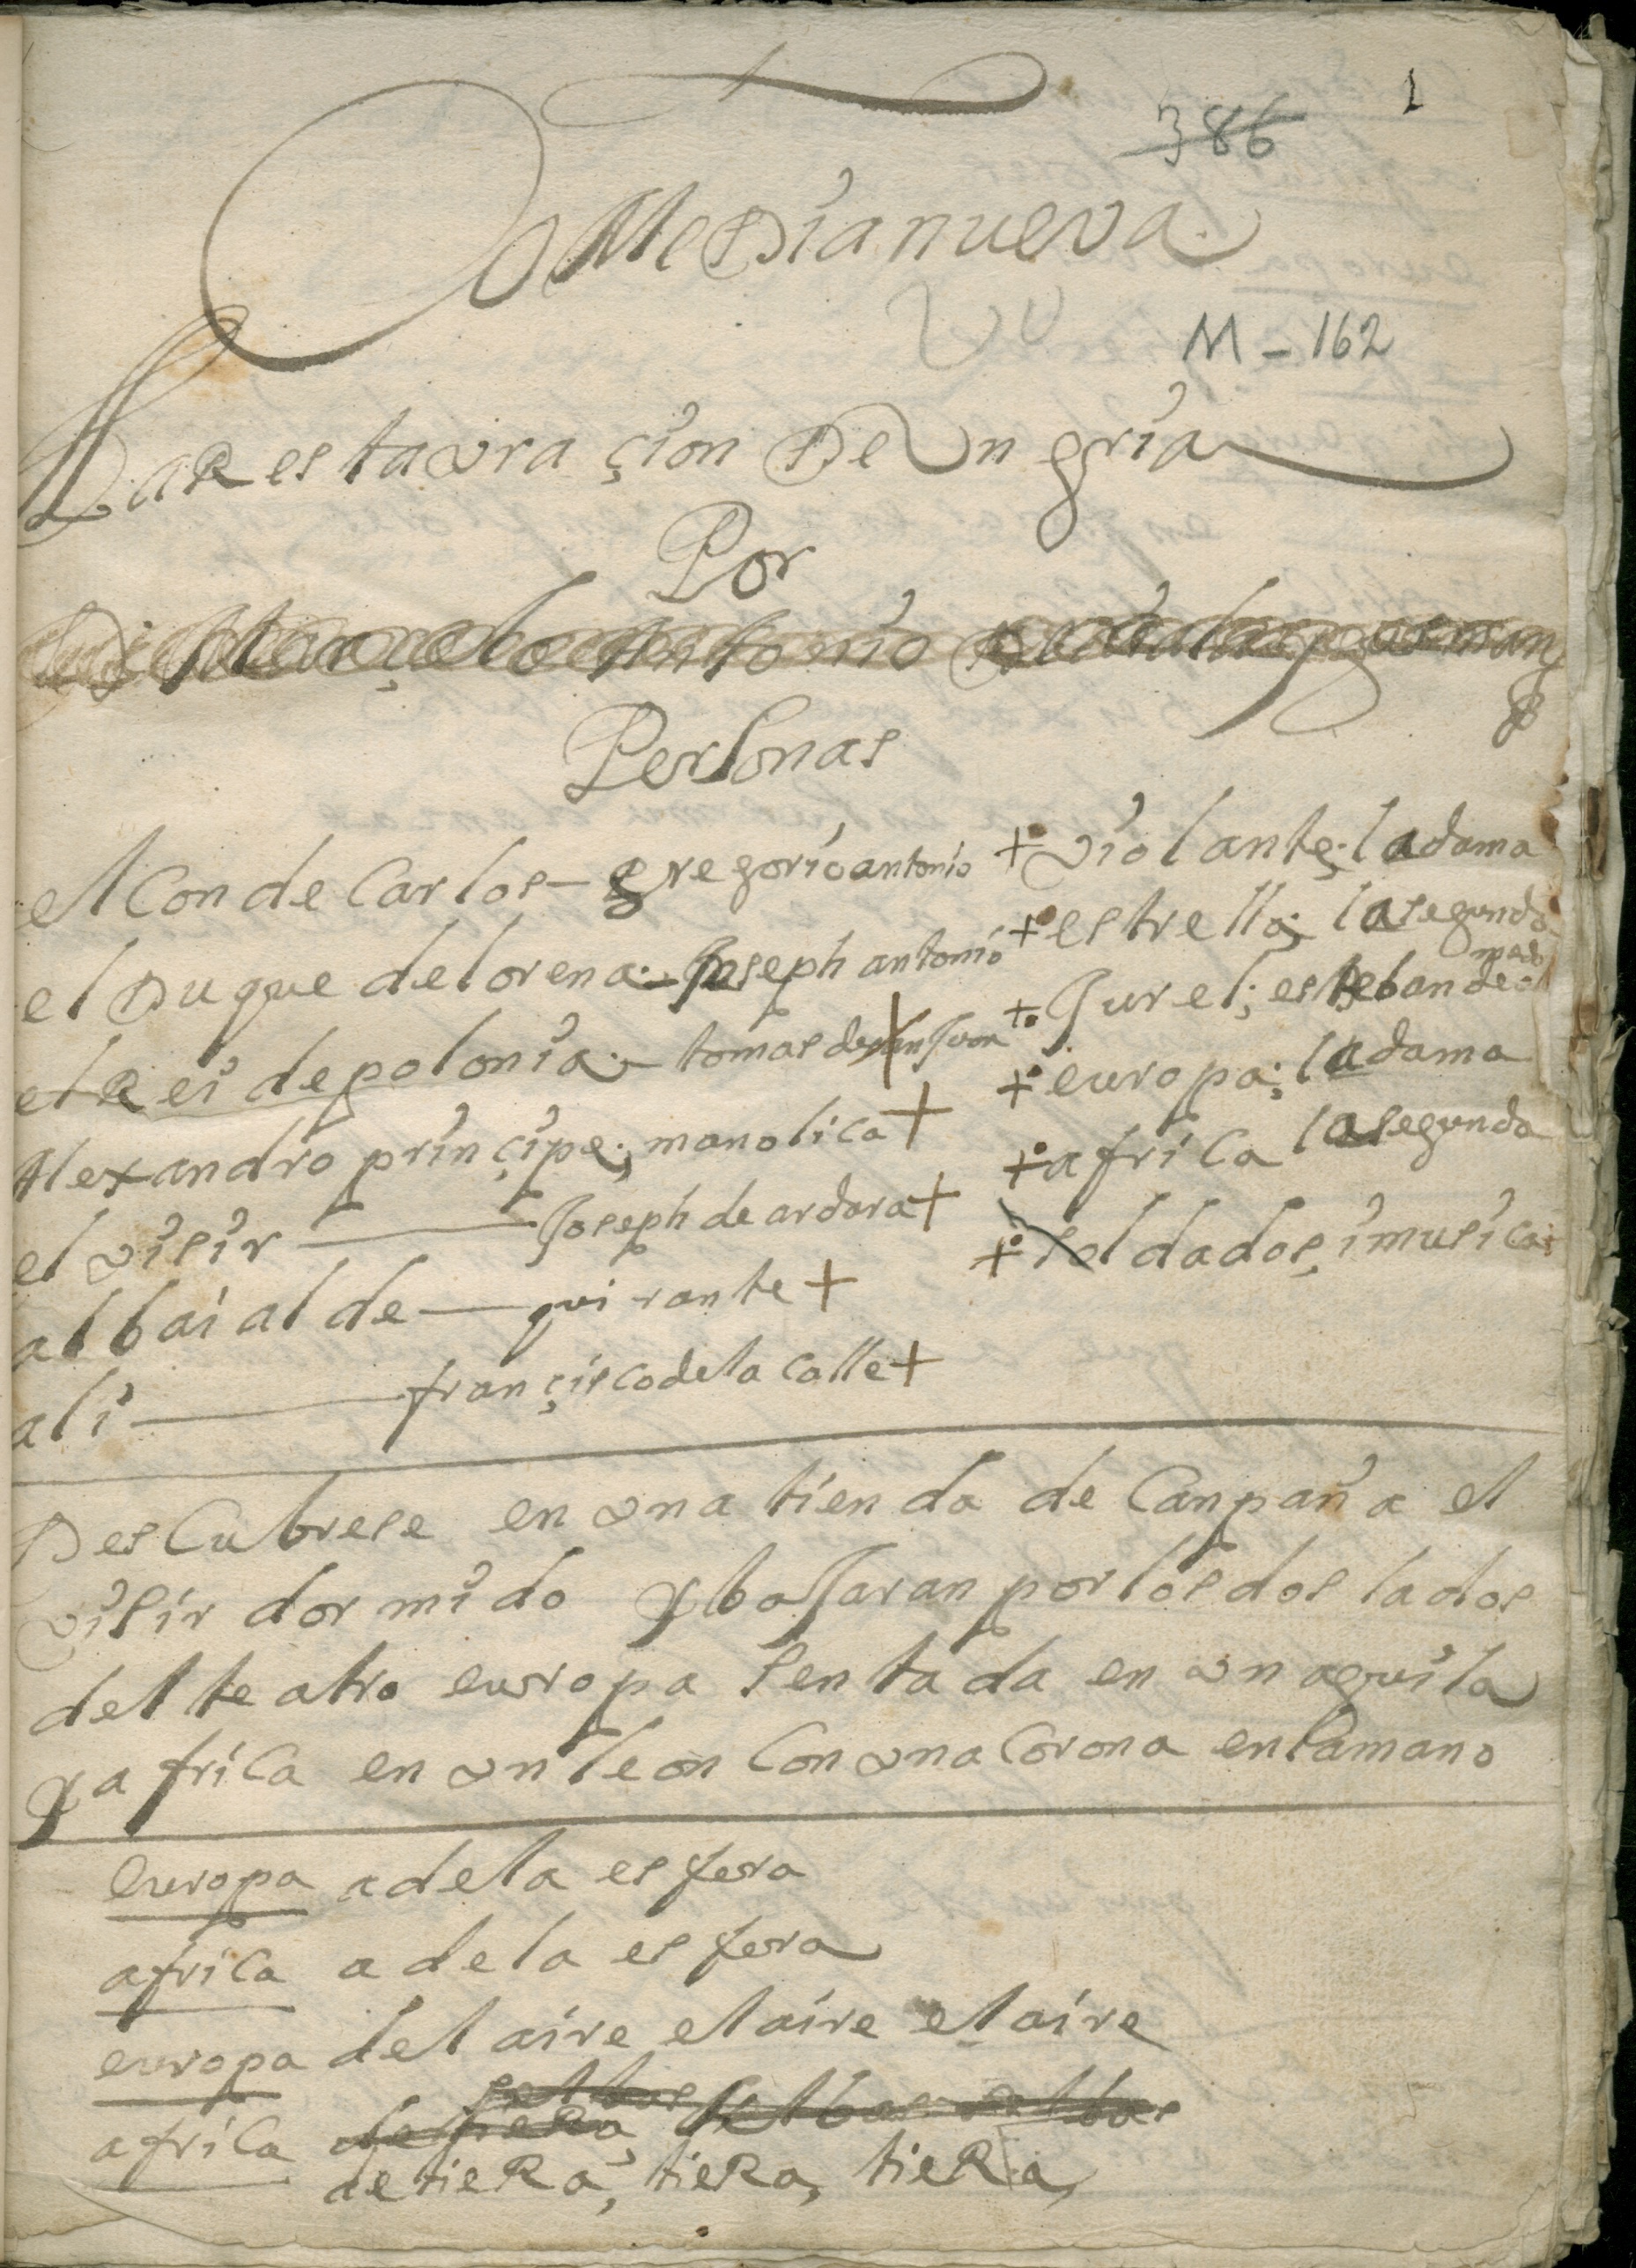 1
386
Comedia nueva
M-162
La Restauraçion De Ungria
Por
Di Marçelo Antonio
Personas
el Conde Carlos - gregorio antonio
el Duque de lorena - Joseph antonio
el Rei de polonia - tomas de San Juan
Alexandro prinçipe; manolica +
el visir — Joseph de ardara +
albaialde — quirante +
ali — françisco de la Calle +
+ violante; la dama
+ estrella; la segunda
+ Jurel; esteban de
+ europa; la dama
+ africa la segunda
+ soldados, i musica
Des Cubrese en una tienda de Canpaña el
visir dormido y baJaran por los dos lados
del teatro europa Sentada en un aguila
y africa en un leon Con una Corona en la mano
europa a de la esfera
africa a de la esfera
europa del aire el aire el aire
selbas selbas selbas
africa
de tieRa, tieRa, tieRa